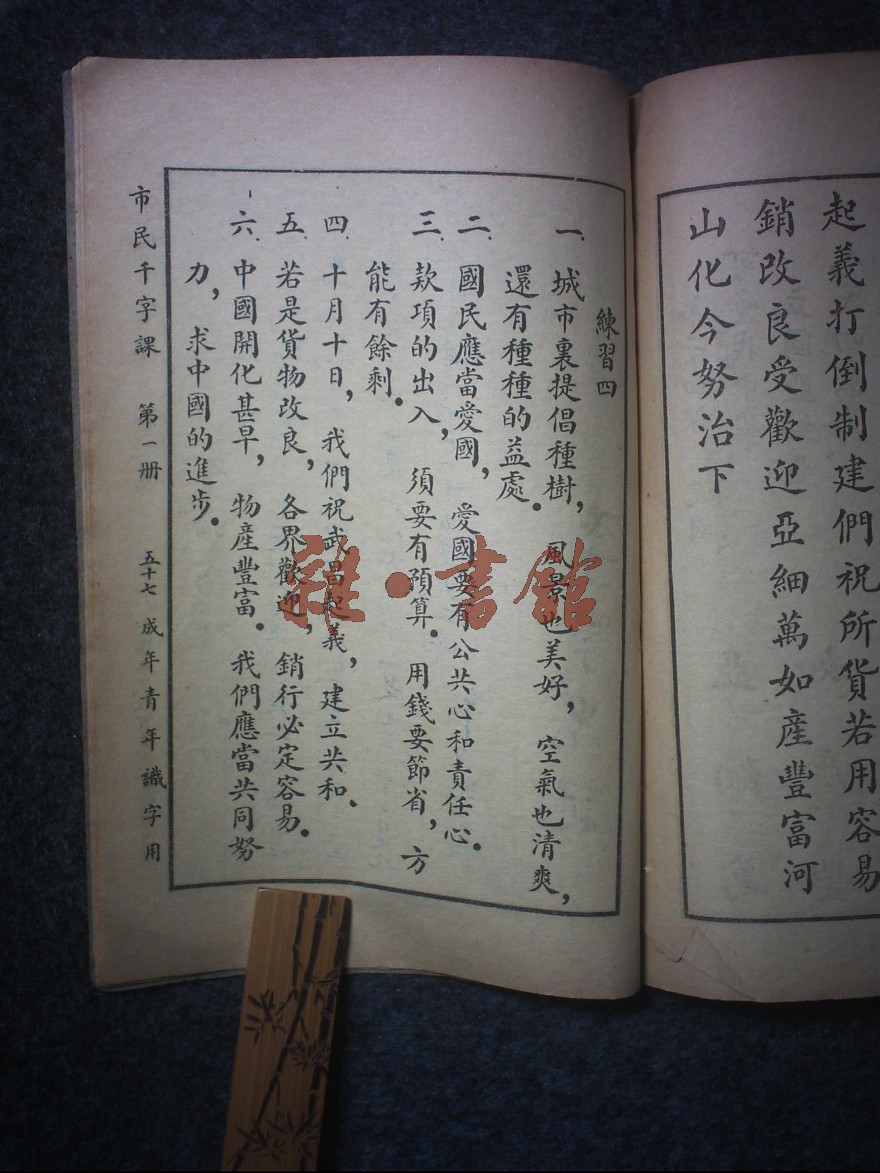 起義打倒制建們祝所貨若用容易
銷改良受歡迎亞細萬如產豐富河
山化今努治下
練習四
一、城市裏提倡種樹，風景也美好，空氣也清爽，
還有種種的益處。
二、國民應當愛國，愛國要有公共心和責任心。
三、款項的出入，須要有預算。用錢要節省，方
能有餘剩。
四、十月十日，我們祝武昌起義，建立共和。
五、若是貨物改良，各界歡迎，銷行必定容易。
六、中國開化甚早，物產豐富。我們應當共同努
力，求中國的進步。
市民千字課 第一册 五十七 成年青年識字用
雜·書館